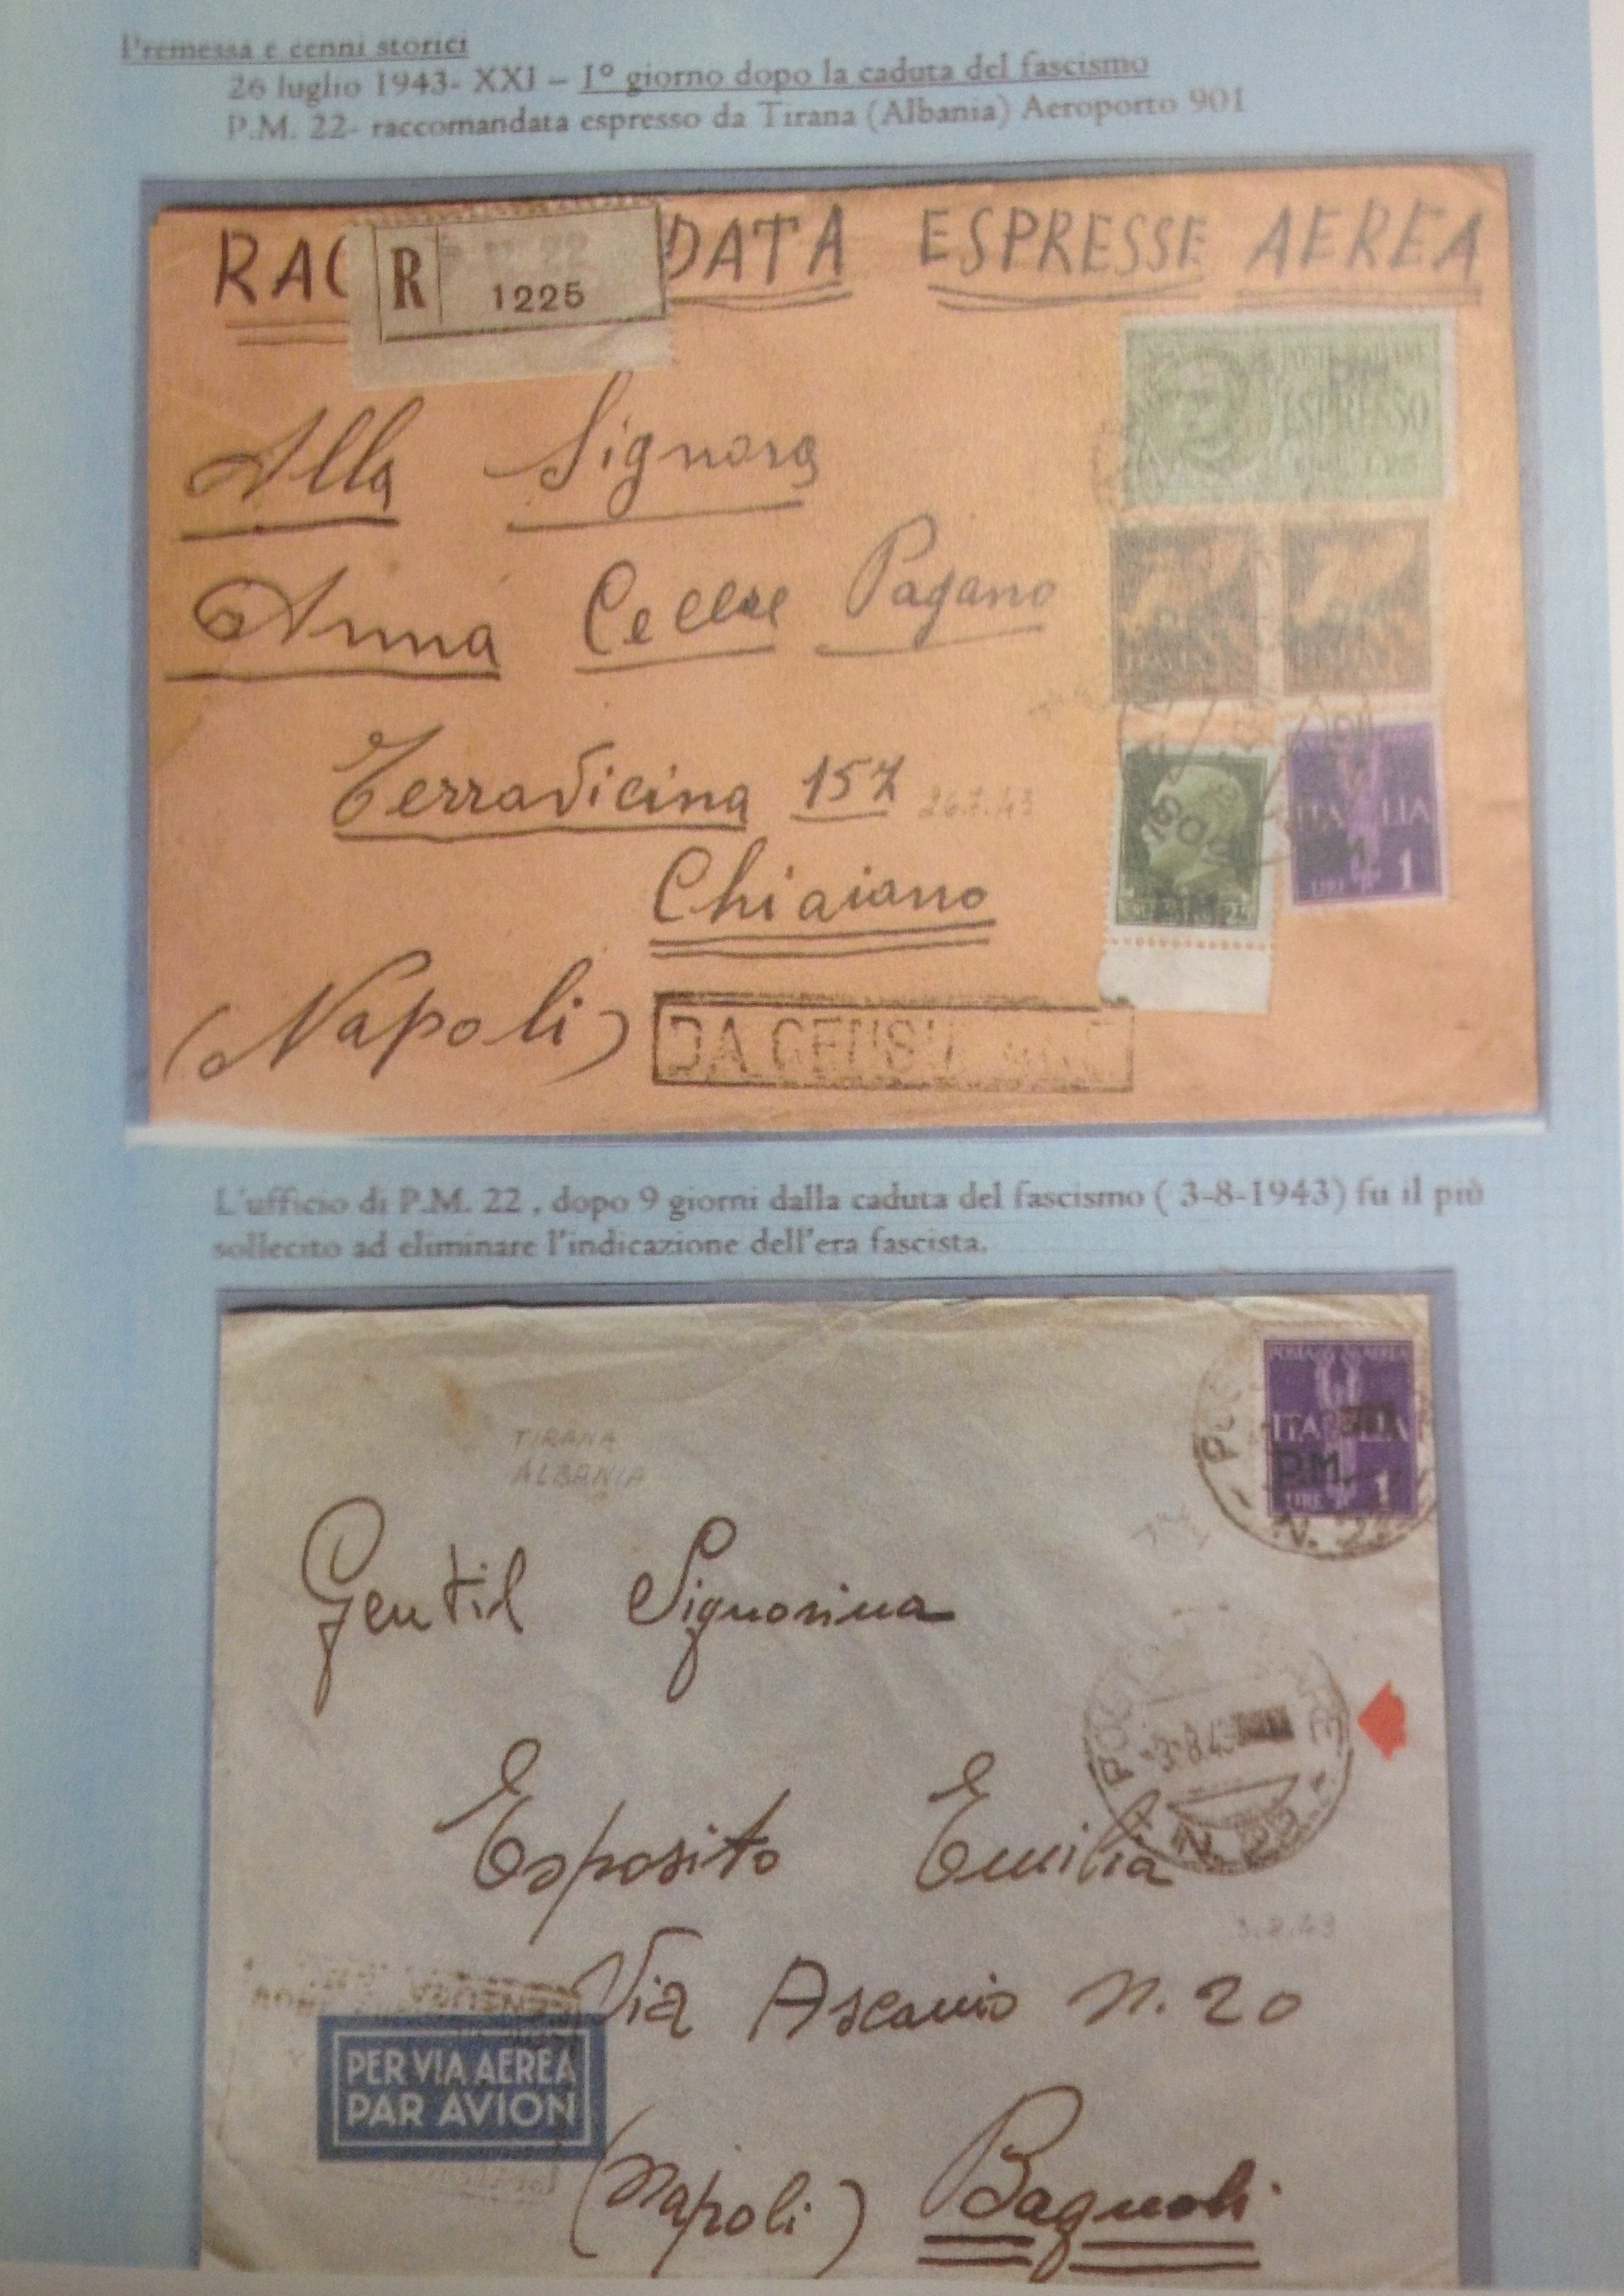 Premessa e cenni storici
26 luglio 1943- XXI – I° giorno dopo la caduta del fascismo
P.M. 22- raccomandata espresso da Tirana (Albania) Aeroporto 901
RAC DATA ESPRESSE AEREA
R 1225
ESPRESSO
Alla Signora
Anna Pagano
ITALIA
Terradicina 157
26.7.43
ITALIA
LIRE 1
Chiaiano
(Napoli)
DA CENSU
L'ufficio di P.M. 22 , dopo 9 giorni dalla caduta del fascismo ( 3-8-1943) fu il più
sollecito ad eliminare l'indicazione dell'era fascista.
POSTA AEREA
ITALIA
P.M.
LIRE 1
N. 22
TIRANA
ALBANIA
Gentil Signorina
3.8.43
N. 22
Esposito Emilia
3.8.43
Via Ascanio n. 20
PER VIA AEREA
PAR AVION
(Napoli) Bagnoli